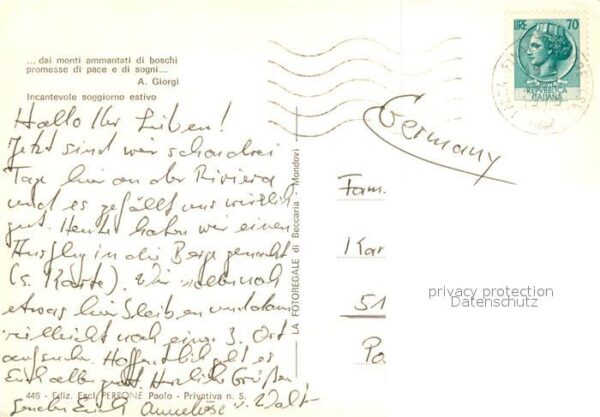 ... dai monti ammantati di boschi
promesse di pace e di sogni...
A. Giorgi
Incantevole soggiorno estivo
Hallo Ihr Lieben!
Jetzt sind wir schon drei
Tage hier an der Riviera
und es gefällt uns wirklich
gut. Heute haben wir einen
Ausflug in die Berge gemacht
(s. Karte). Wir wollen noch
etwas hier bleiben und dann
vielleicht noch einen 3. Ort
aufsuchen. Hoffentlich geht es
Euch allen gut. Herzliche Grüße
senden Euch Annelose u. Walt
446 - Ediz. Escl. PERSONE Paolo - Privativa n. 5.
LA FOTOREGALE di Beccaria - Mondovì
LIRE 70
REPVBBLICA
ITALIANA
Germany
Fam.
Kar
51
Po
privacy protection
Datenschutz